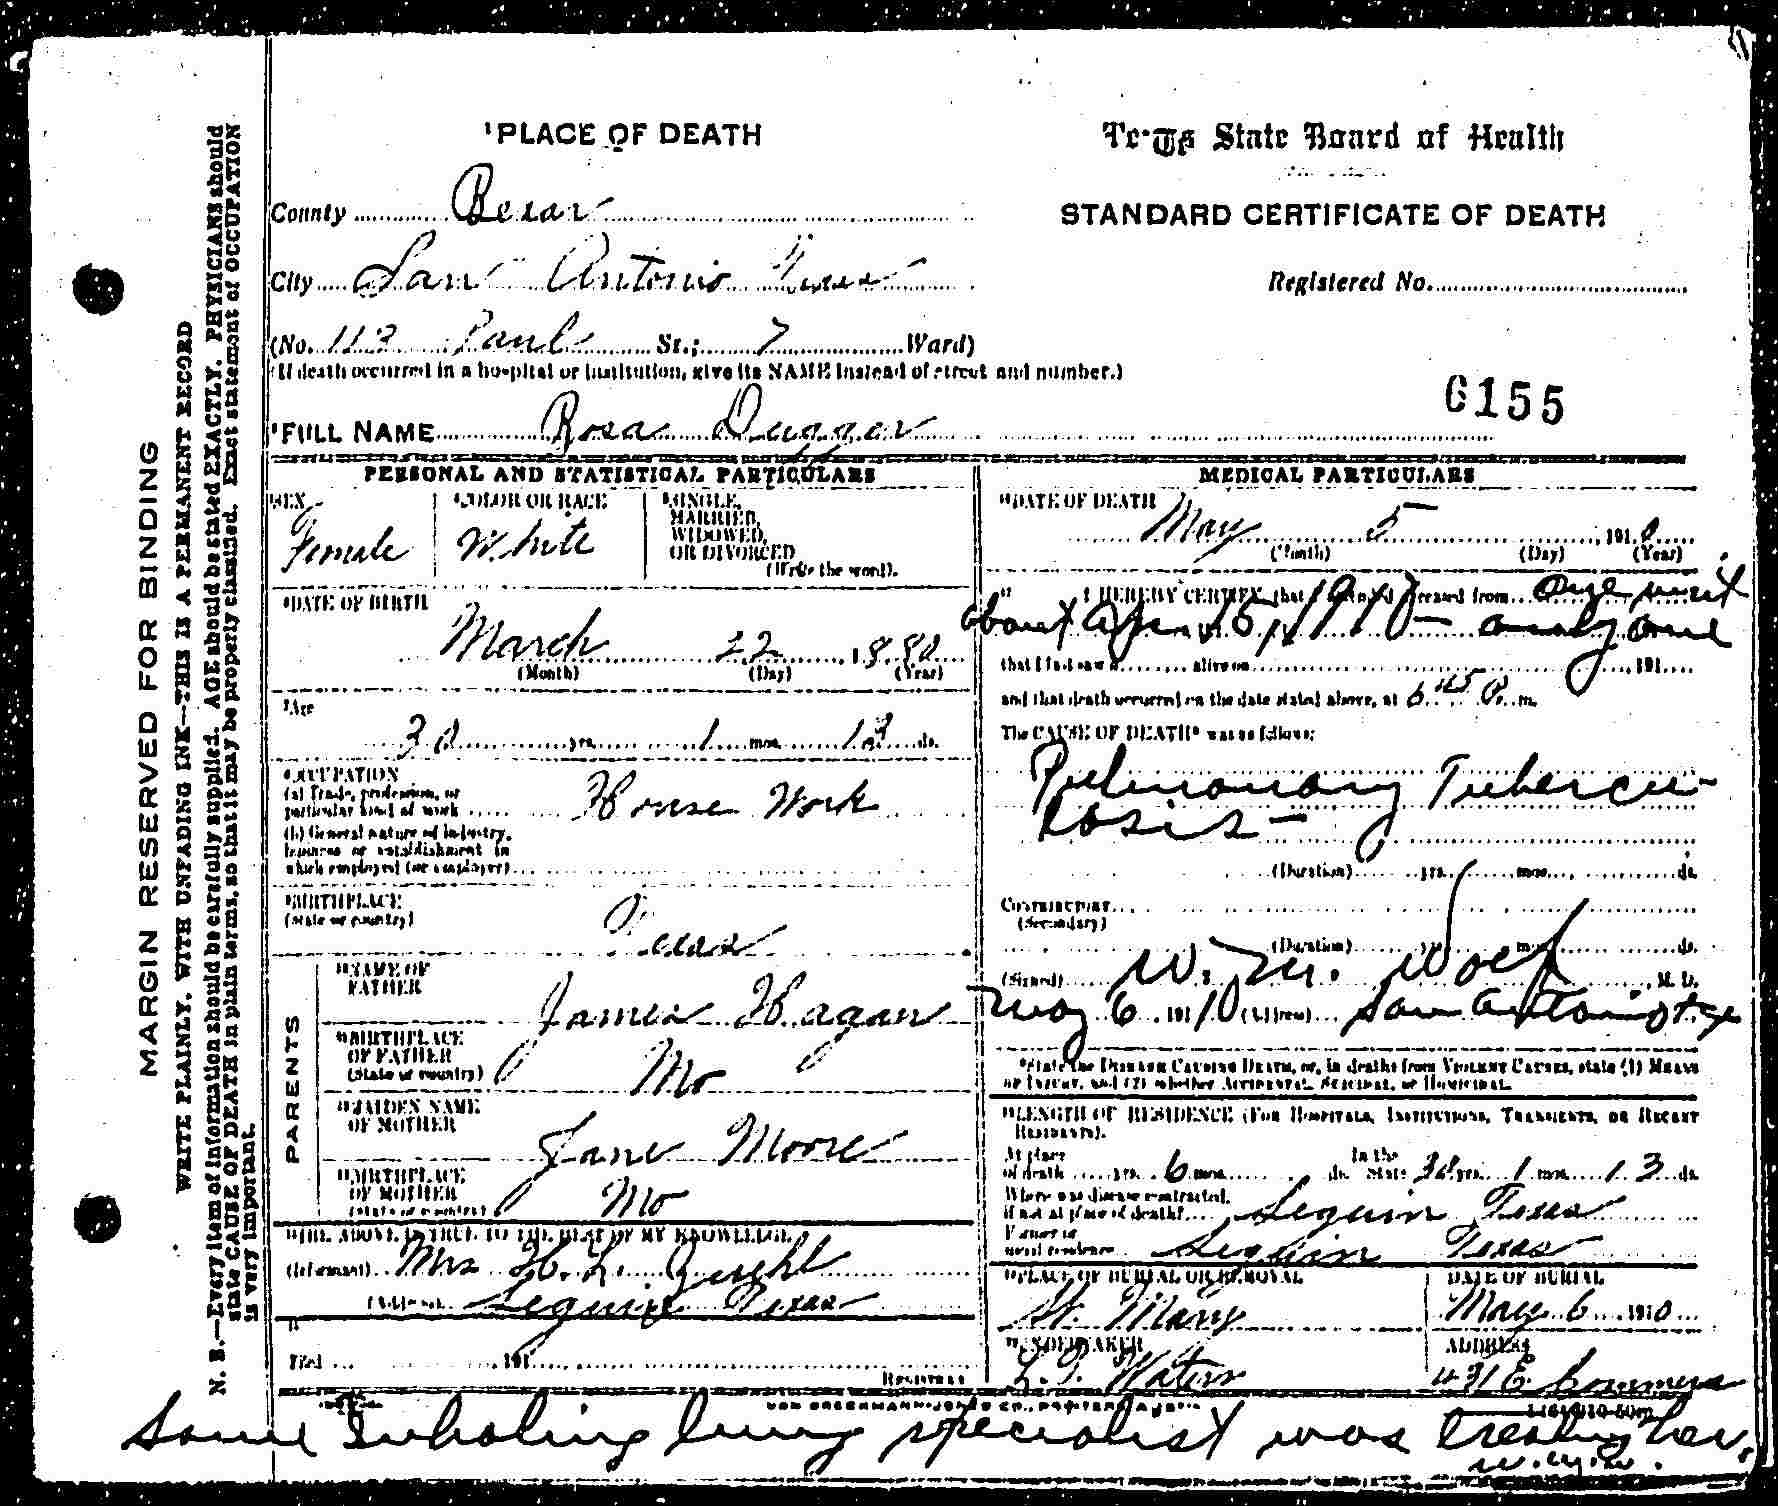 ¹PLACE OF DEATH
Texas State Board of Health
STANDARD CERTIFICATE OF DEATH
County Bexar
City San Antonio Texas
Registered No.
(No. 113 Paul St.; 7 Ward)
(If death occurred in a hospital or institution, give its NAME instead of street and number.)
6155
FULL NAME Rosa Duggar
PERSONAL AND STATISTICAL PARTICULARS
SEX
Female
COLOR OR RACE
White
SINGLE,
MARRIED,
WIDOWED,
OR DIVORCED
(Write the word).
DATE OF BIRTH
March 22, 1880
(Month) (Day) (Year)
Age
30 yrs. 1 mos. 13 ds.
OCCUPATION
(a) Trade, profession, or
particular kind of work House Work
(b) General nature of industry,
business or establishment in
which employed (or employer)
BIRTHPLACE
(State or country)
Texas
PARENTS
NAME OF
FATHER
James Hagan
BIRTHPLACE
OF FATHER
(State or country)
Mo
MAIDEN NAME
OF MOTHER
Jane Moore
BIRTHPLACE
OF MOTHER
(State or country)
Mo
THE ABOVE IS TRUE TO THE BEST OF MY KNOWLEDGE
(Informant) Mrs H. L.
(Address) Seguin Texas
Filed 191
REGISTRAR
MEDICAL PARTICULARS
DATE OF DEATH
May 5, 1910
(Month) (Day) (Year)
I HEREBY CERTIFY, that I attended deceased from One visit
about Apr 15, 1910 - only one
that I last saw h alive on 191
and that death occurred on the date stated above, at 6 45 P. m.
The CAUSE OF DEATH* was as follows:
Pulmonary Tubercu-
losis -
(Duration) yrs. mos. ds.
CONTRIBUTORY
(Secondary)
(Duration) yrs. mos. ds.
(Signed) W. M. Wolf, M. D.
May 6, 1910 (Address) San Antonio Tx
*State the DISEASE CAUSING DEATH, or, in deaths from VIOLENT CAUSES, state (1) MEANS
OF INJURY, and (2) whether ACCIDENTAL, SUICIDAL, or HOMICIDAL.
LENGTH OF RESIDENCE (FOR HOSPITALS, INSTITUTIONS, TRANSIENTS, OR RECENT
RESIDENTS).
At place
of death yrs. 6 mos. ds. In the
State 30 yrs. 1 mos. 13 ds.
Where was disease contracted,
if not at place of death? Seguin Texas
Former or
usual residence Seguin Texas
PLACE OF BURIAL OR REMOVAL
St. Mary
DATE OF BURIAL
May 6 1910
UNDERTAKER
Waters
ADDRESS
431 E. Commerce
Some Inhaling lung specialist was treating her.
MARGIN RESERVED FOR BINDING
WRITE PLAINLY, WITH UNFADING INK—THIS IS A PERMANENT RECORD
N. B.—Every item of information should be carefully supplied. AGE should be stated EXACTLY. PHYSICIANS should
state CAUSE OF DEATH in plain terms, so that it may be properly classified. Exact statement of OCCUPATION
is very important.